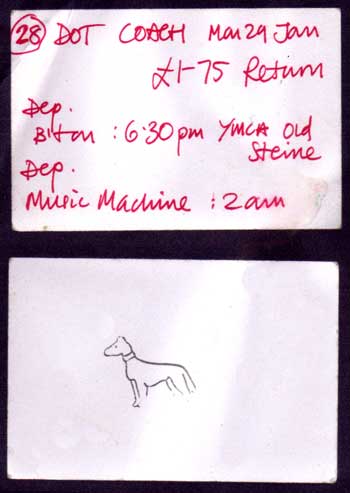 28 DOT COACH Mon 29 Jan
£1-75 Return
Dep.
B'ton : 6.30pm YMCA Old
Steine
Dep.
Music Machine : 2am